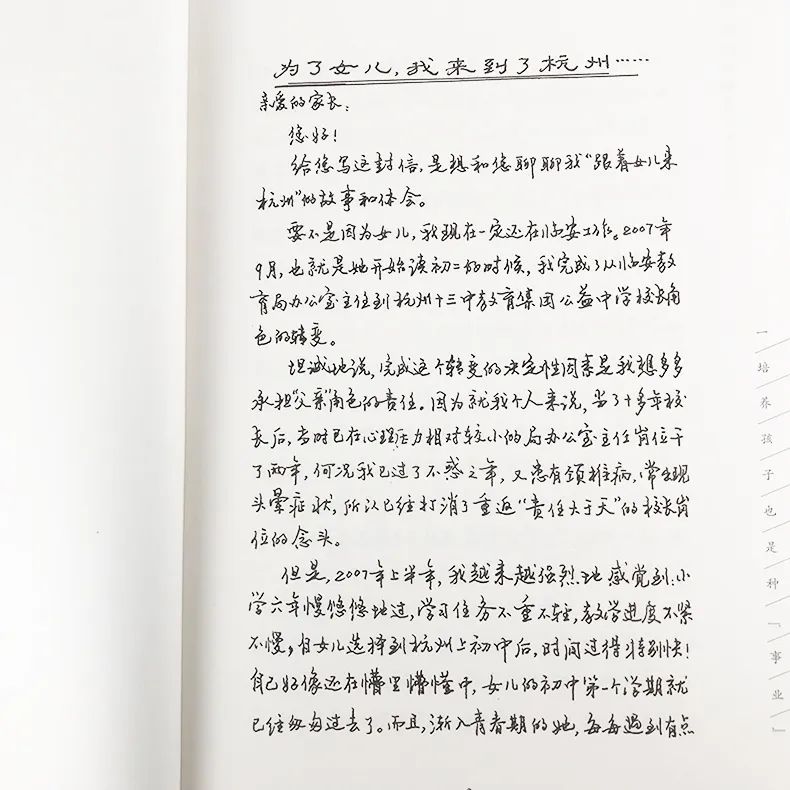 为了女儿，我来到了杭州……
亲爱的家长：
您好！
给您写这封信，是想和您聊聊我“跟着女儿来
杭州”的故事和体会。
要不是因为女儿，我现在一定还在临安工作。2007年
9月，也就是她开始读初二的时候，我完成了从临安教
育局办公室主任到杭州十三中教育集团公益中学校长角
色的转变。
坦诚地说，完成这个转变的决定性因素是我想多多
承担“父亲”角色的责任。因为就我个人来说，当了十多年校
长后，当时已在心理压力相对较小的局办公室主任岗位干
了两年，何况我已过了不惑之年，又患有颈椎病，常出现
头晕症状，所以已经打消了重返“责任大于天”的校长岗
位的念头。
但是，2007年上半年，我越来越强烈地感觉到：小
学六年慢悠悠地过，学习任务不重不轻，教学进度不紧
不慢，自女儿选择到杭州上初中后，时间过得特别快！
自己好像还在懵里懵懂中，女儿的初中第一个学期就
已经匆匆过去了。而且，渐入青春期的她，每每遇到有点
一培养孩子也是种「事业」